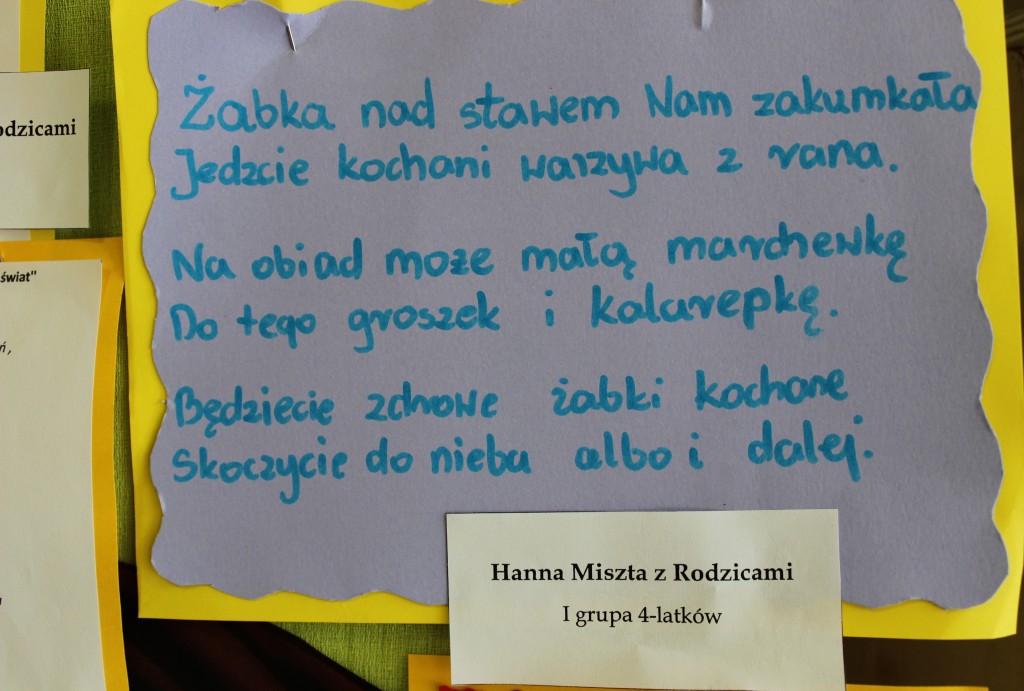 Żabka nad stawem Nam zakumkała
Jedzcie kochani warzywa z rana.
Na obiad może małą marchewkę
Do tego groszek i kalarepkę.
Będziecie zdrowe żabki kochane
Skoczycie do nieba albo i dalej.
Hanna Miszta z Rodzicami
I grupa 4-latków
odzicami
świat"
ń,
"